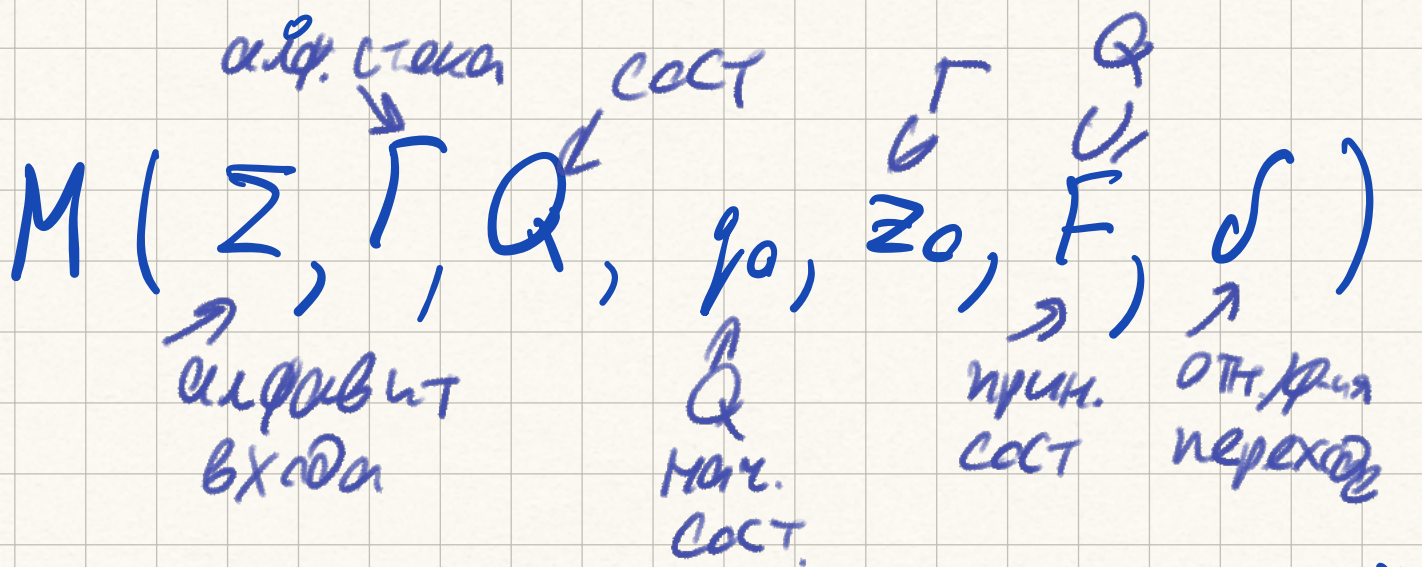 алф. стека
сост
Γ
Q
M ( Σ, Γ, Q, q0, z0, F, δ )
алфавит
входа
Q
нач.
сост.
прин.
сост
отн./ф-ия
перехода